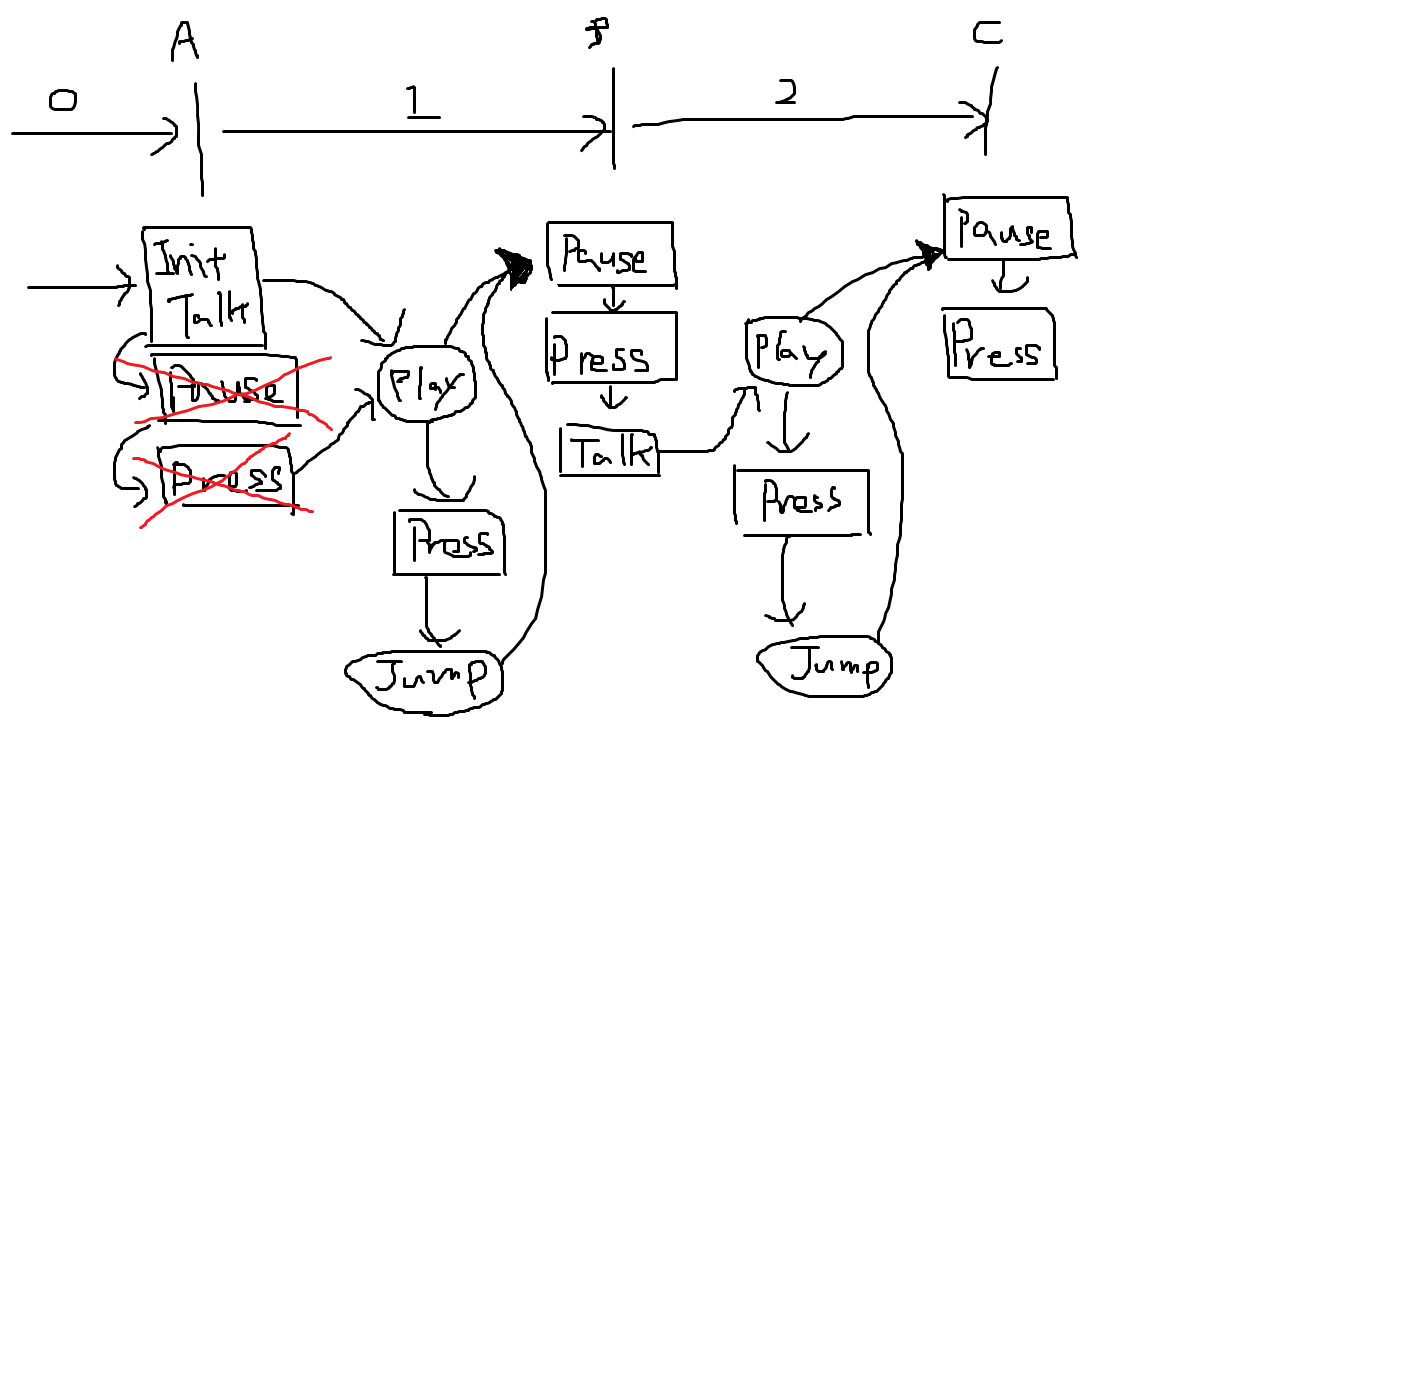 A
C
0
1
2
Init
Talk
Pause
Press
Play
Press
Jump
Pause
Press
Talk
Play
Press
Jump
Pause
Press